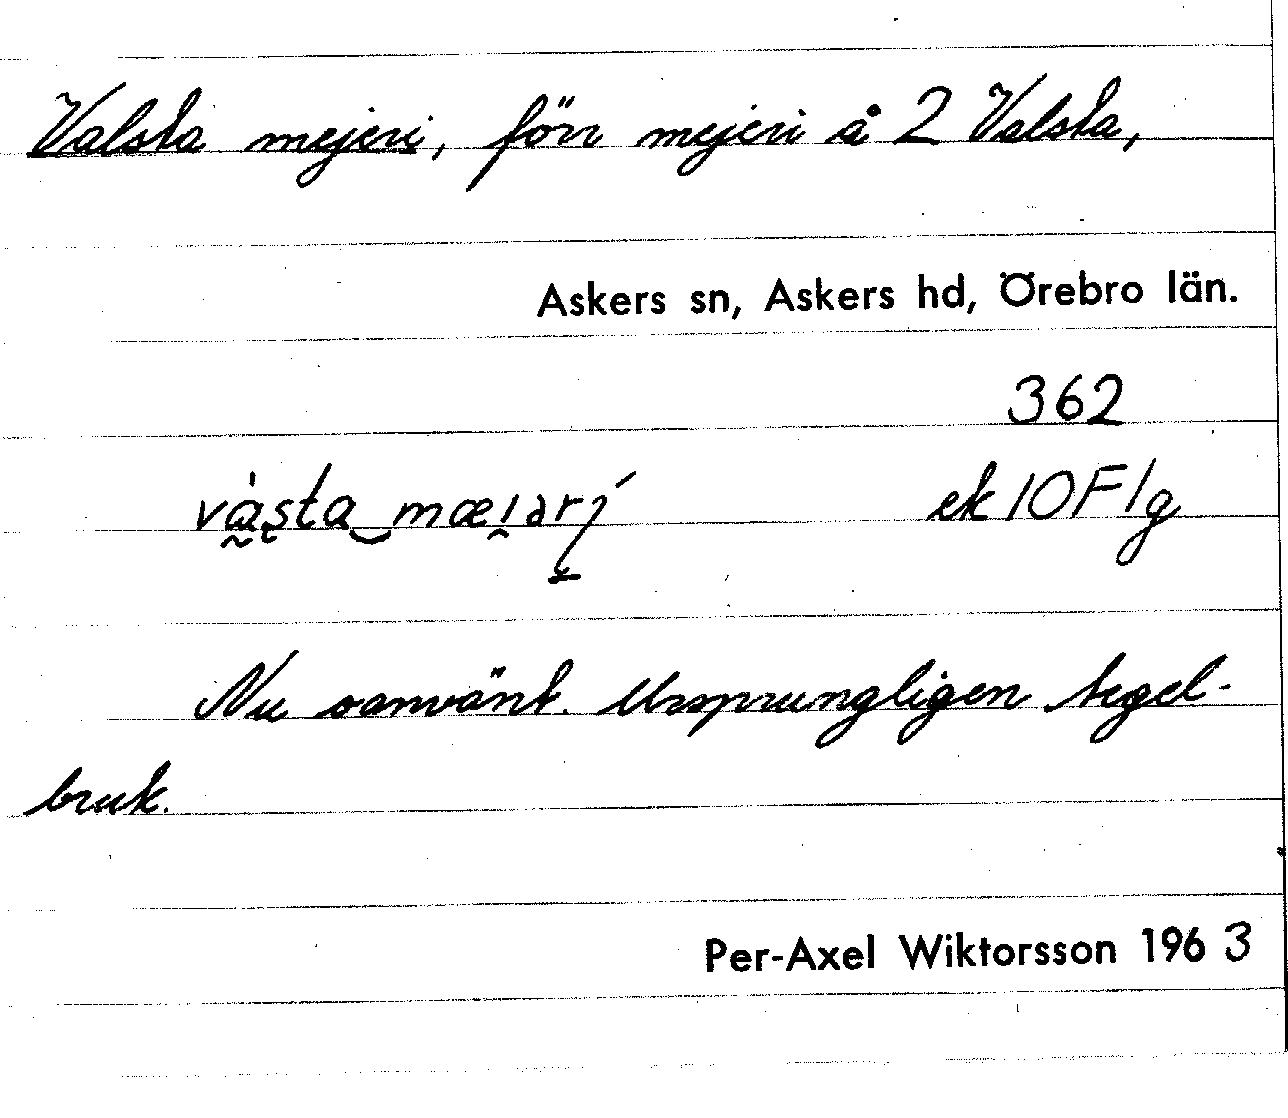 Valsta mejeri, förr mejeri å 2 Valsta,
Askers sn, Askers hd, Örebro län.
362
ek 10 F 1g
Nu oanvänt. Ursprungligen tegel-
bruk.
Per-Axel Wiktorsson 1963